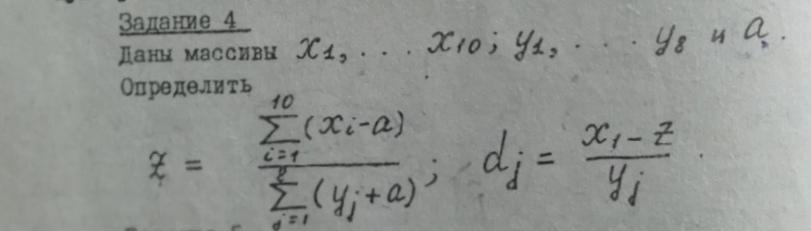 Задание 4
Даны массивы x1, . . . x10; y1, . . . y8 и a.
Определить
z = \frac{\sum_{i=1}^{10}(x_i - a)}{\sum_{j=1}^{8}(y_j + a)}; d_j = \frac{x_1 - z}{y_j}.